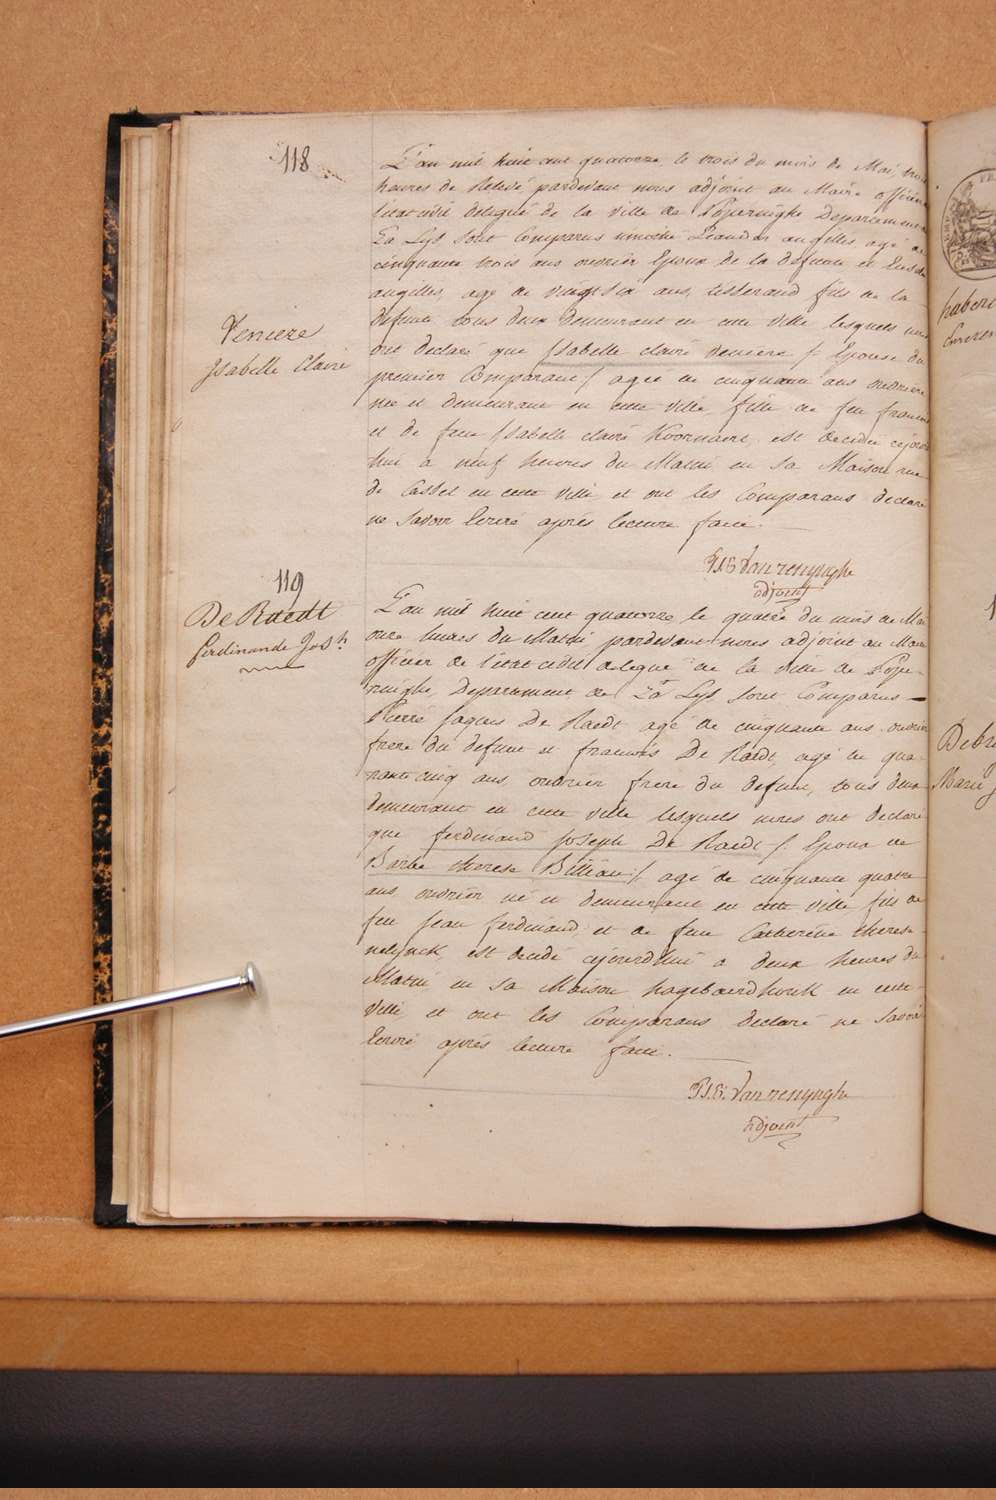 118
L'an mil huit cent quatorze, le trois du mois de Mai, trois
heures de Relevé, pardevant nous adjoint au Maire officier
l'etat civil delegué de la ville de Poperinghe Departement
La Lys sont Comparus Leander angilles agé de
cinquante trois ans ouvrier Epoux de la defunte et
angilles, agé de vingt six ans, tisserand fils de la
defunte tous deux demeurant en cette ville lesquels nous
ont declaré que Isabelle claire veniere /: Epouse du
premier Comparant :/ agée de cinquante ans ouvriere
née et demeurant en cette ville fille de feu francois
et de feue Isabelle claire Koornaert, est decedée cejourd
hui a neuf heures du Matin en sa Maison rue
de Cassel en cette ville et ont les Comparans declaré
ne savoir Ecrire après lecture faite.
Veniere
Ysabelle Claire
P.J.B. Vanrenynghe
adjoint
119
De Raedt
ferdinande Josh
L'an mil huit cent quatorze le quatre du mois de Mai
onze heures du Matin pardevant nous adjoint au Maire
officier de l'etat civil delegué de la ville de Pope-
ringhe, Departement de La Lys sont Comparus
Pierre Jaques De Raedt agé de cinquante ans ouvrier
frere du defunt et francois De Raedt, agé de qua-
rante cinq ans, ouvrier frere du defunt, tous deux
demeurant en cette ville lesquels nous ont declaré
que ferdinand Joseph De Raedt /: Epoux de
Barbe therese Billiau :/ agé de cinquante quatre
ans, ouvrier né et demeurant en cette ville fils de
feu Jean ferdinand, et de feue Catherine therese
est decedé cejourd'hui a deux heures du
Matin en sa Maison hagebaerdhouk en cette
ville et ont les Comparans declaré ne savoir
Ecrire après lecture faite.
P.J.B. Vanrenynghe
adjoint
Debr
Marie J